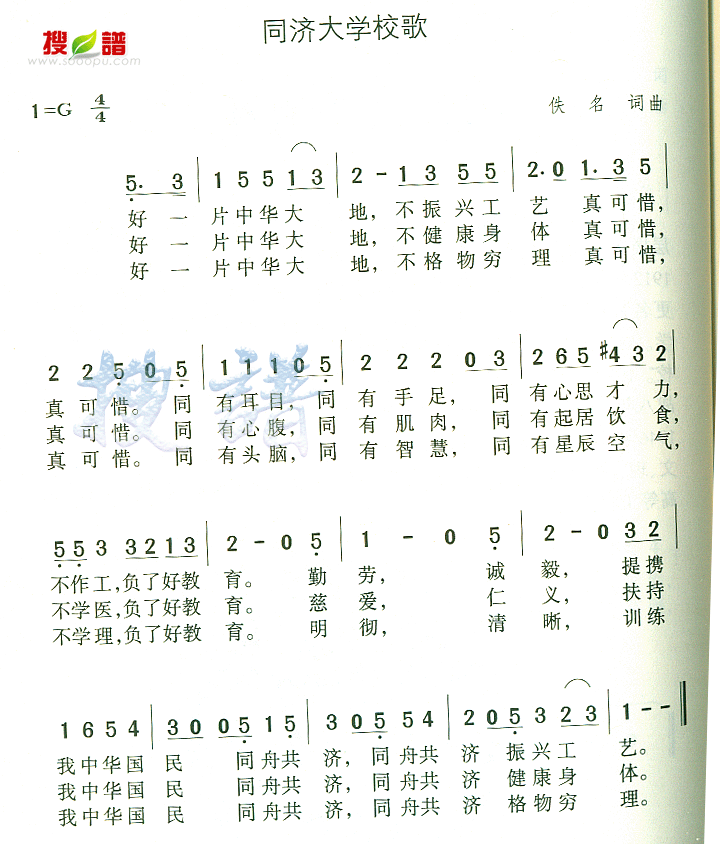 搜谱
www.sooopu.com
同济大学校歌
1=G 4/4
佚 名 词曲
5. 3 | 1 5 5 1 3 | 2 - 1 3 5 5 | 2. 0 1. 3 5 |
好 一 片中华大 地, 不振兴工 艺 真可惜,
好 一 片中华大 地, 不健康身 体 真可惜,
好 一 片中华大 地, 不格物穷 理 真可惜,
2 2 5 0 5 | 1 1 1 0 5 | 2 2 2 0 3 | 2 6 5 #4 3 2 |
真可惜。 同 有耳目, 同 有手足, 同 有心思才力,
真可惜。 同 有心腹, 同 有肌肉, 同 有起居饮食,
真可惜。 同 有头脑, 同 有智慧, 同 有星辰空气,
搜谱
5 5 3 3 2 1 3 | 2 - 0 5 | 1 - 0 5 | 2 - 0 3 2 |
不作工,负了好教 育。 勤 劳, 诚 毅, 提携
不学医,负了好教 育。 慈 爱, 仁 义, 扶持
不学理,负了好教 育。 明 彻, 清 晰, 训练
1 6 5 4 | 3 0 0 5 1 5 | 3 0 5 5 4 | 2 0 5 3 2 3 | 1 - - ‖
我中华国 民 同舟共 济, 同舟共 济 振兴工 艺。
我中华国 民 同舟共 济, 同舟共 济 健康身 体。
我中华国 民 同舟共 济, 同舟共 济 格物穷 理。